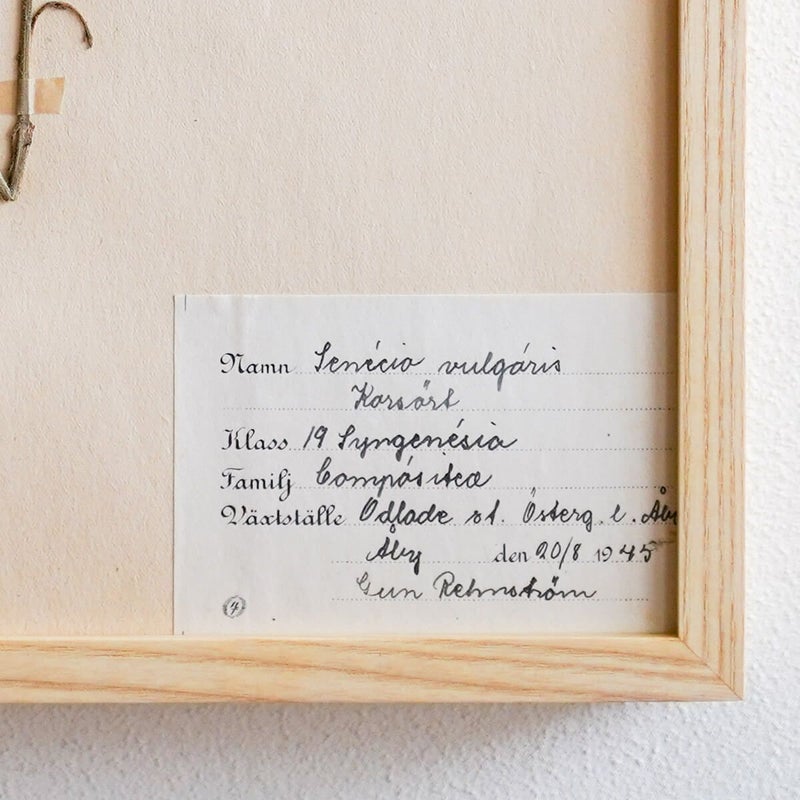 Namn Senécio vulgáris
Korsört
Klass 19 Syngenésia
Familj Compósitæ
Växtställe Odlade st. Österg. l. Åby
Åby den 20/8 1945
Gun Rehnström
4